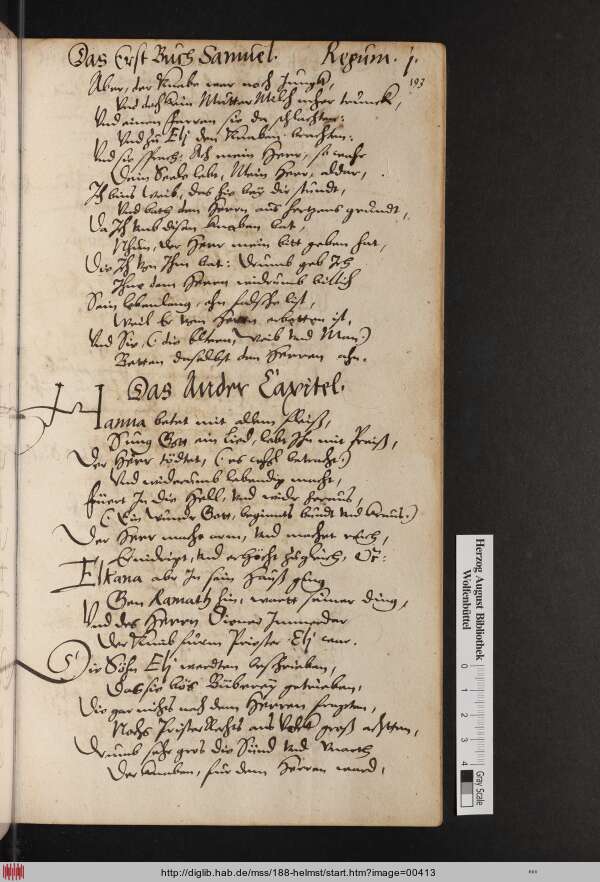 Das Erst Buch Samuel. Regum. j.
193
Aber, der Knabe war noch Jungk,
Und doch kein Mutter Milch mher trunck,
Und einen pfarren sie da schlachten:
Und zu Elj den Knaben brachten:
Und sie sprach: Ach mein Herr, so wahr
Dein Seele lebt, Mein Herr,
Ich bins weib, das hie bey dir stundt,
Und bath den Herrn aus hertzens grundt,
Da Ich umb disen knaben bat,
Nhun, der Herr mein bitt geben hat,
Die Ich von Ihm bat: Drumb geb Ich
Ihne dem Herren widrumb billich
Sein lebenlang, ohn falsche list,
Weil Er vom Herrn erbetten ist,
Und Sie, (die Eltern, weib und Man)
Betten daselbst den Herren ahn.
Das Ander Capitel.
Hanna betet mit allem fleiß,
Sung Gott ein Lied, lobt Ihn mit Preiß,
Der Herr tödtet, (: es wohl betracht:)
Und widerumb lebendig macht,
füert In die Hell, und wider heraus,
(: Ein wunder Gott, beginnts bundt und kraus:)
Der Herr mache arm, und machet reich,
Ernidrigt, und erhöcht zugleich, Etc:
Elkana aber In sein Hauß ging
Gen Ramath hin, wartt seiner ding,
Und des Herren Diener Immerdar
Der Knab fürm Priester Elj war.
Die Söhn Elj werdten beschrieben,
Das sie bös Büberey getrieben,
Die gar nichts nach dem Herren fragten,
Nochs Pristerrechts ans Volck groß achtten,
Drumb sehr gros die Sünd und
Der knaben, für dem Herren ward,
Herzog August Bibliothek
Wolfenbüttel
0 1 2 3 4
Gray Scale
http://diglib.hab.de/mss/188-helmst/start.htm?image=00413